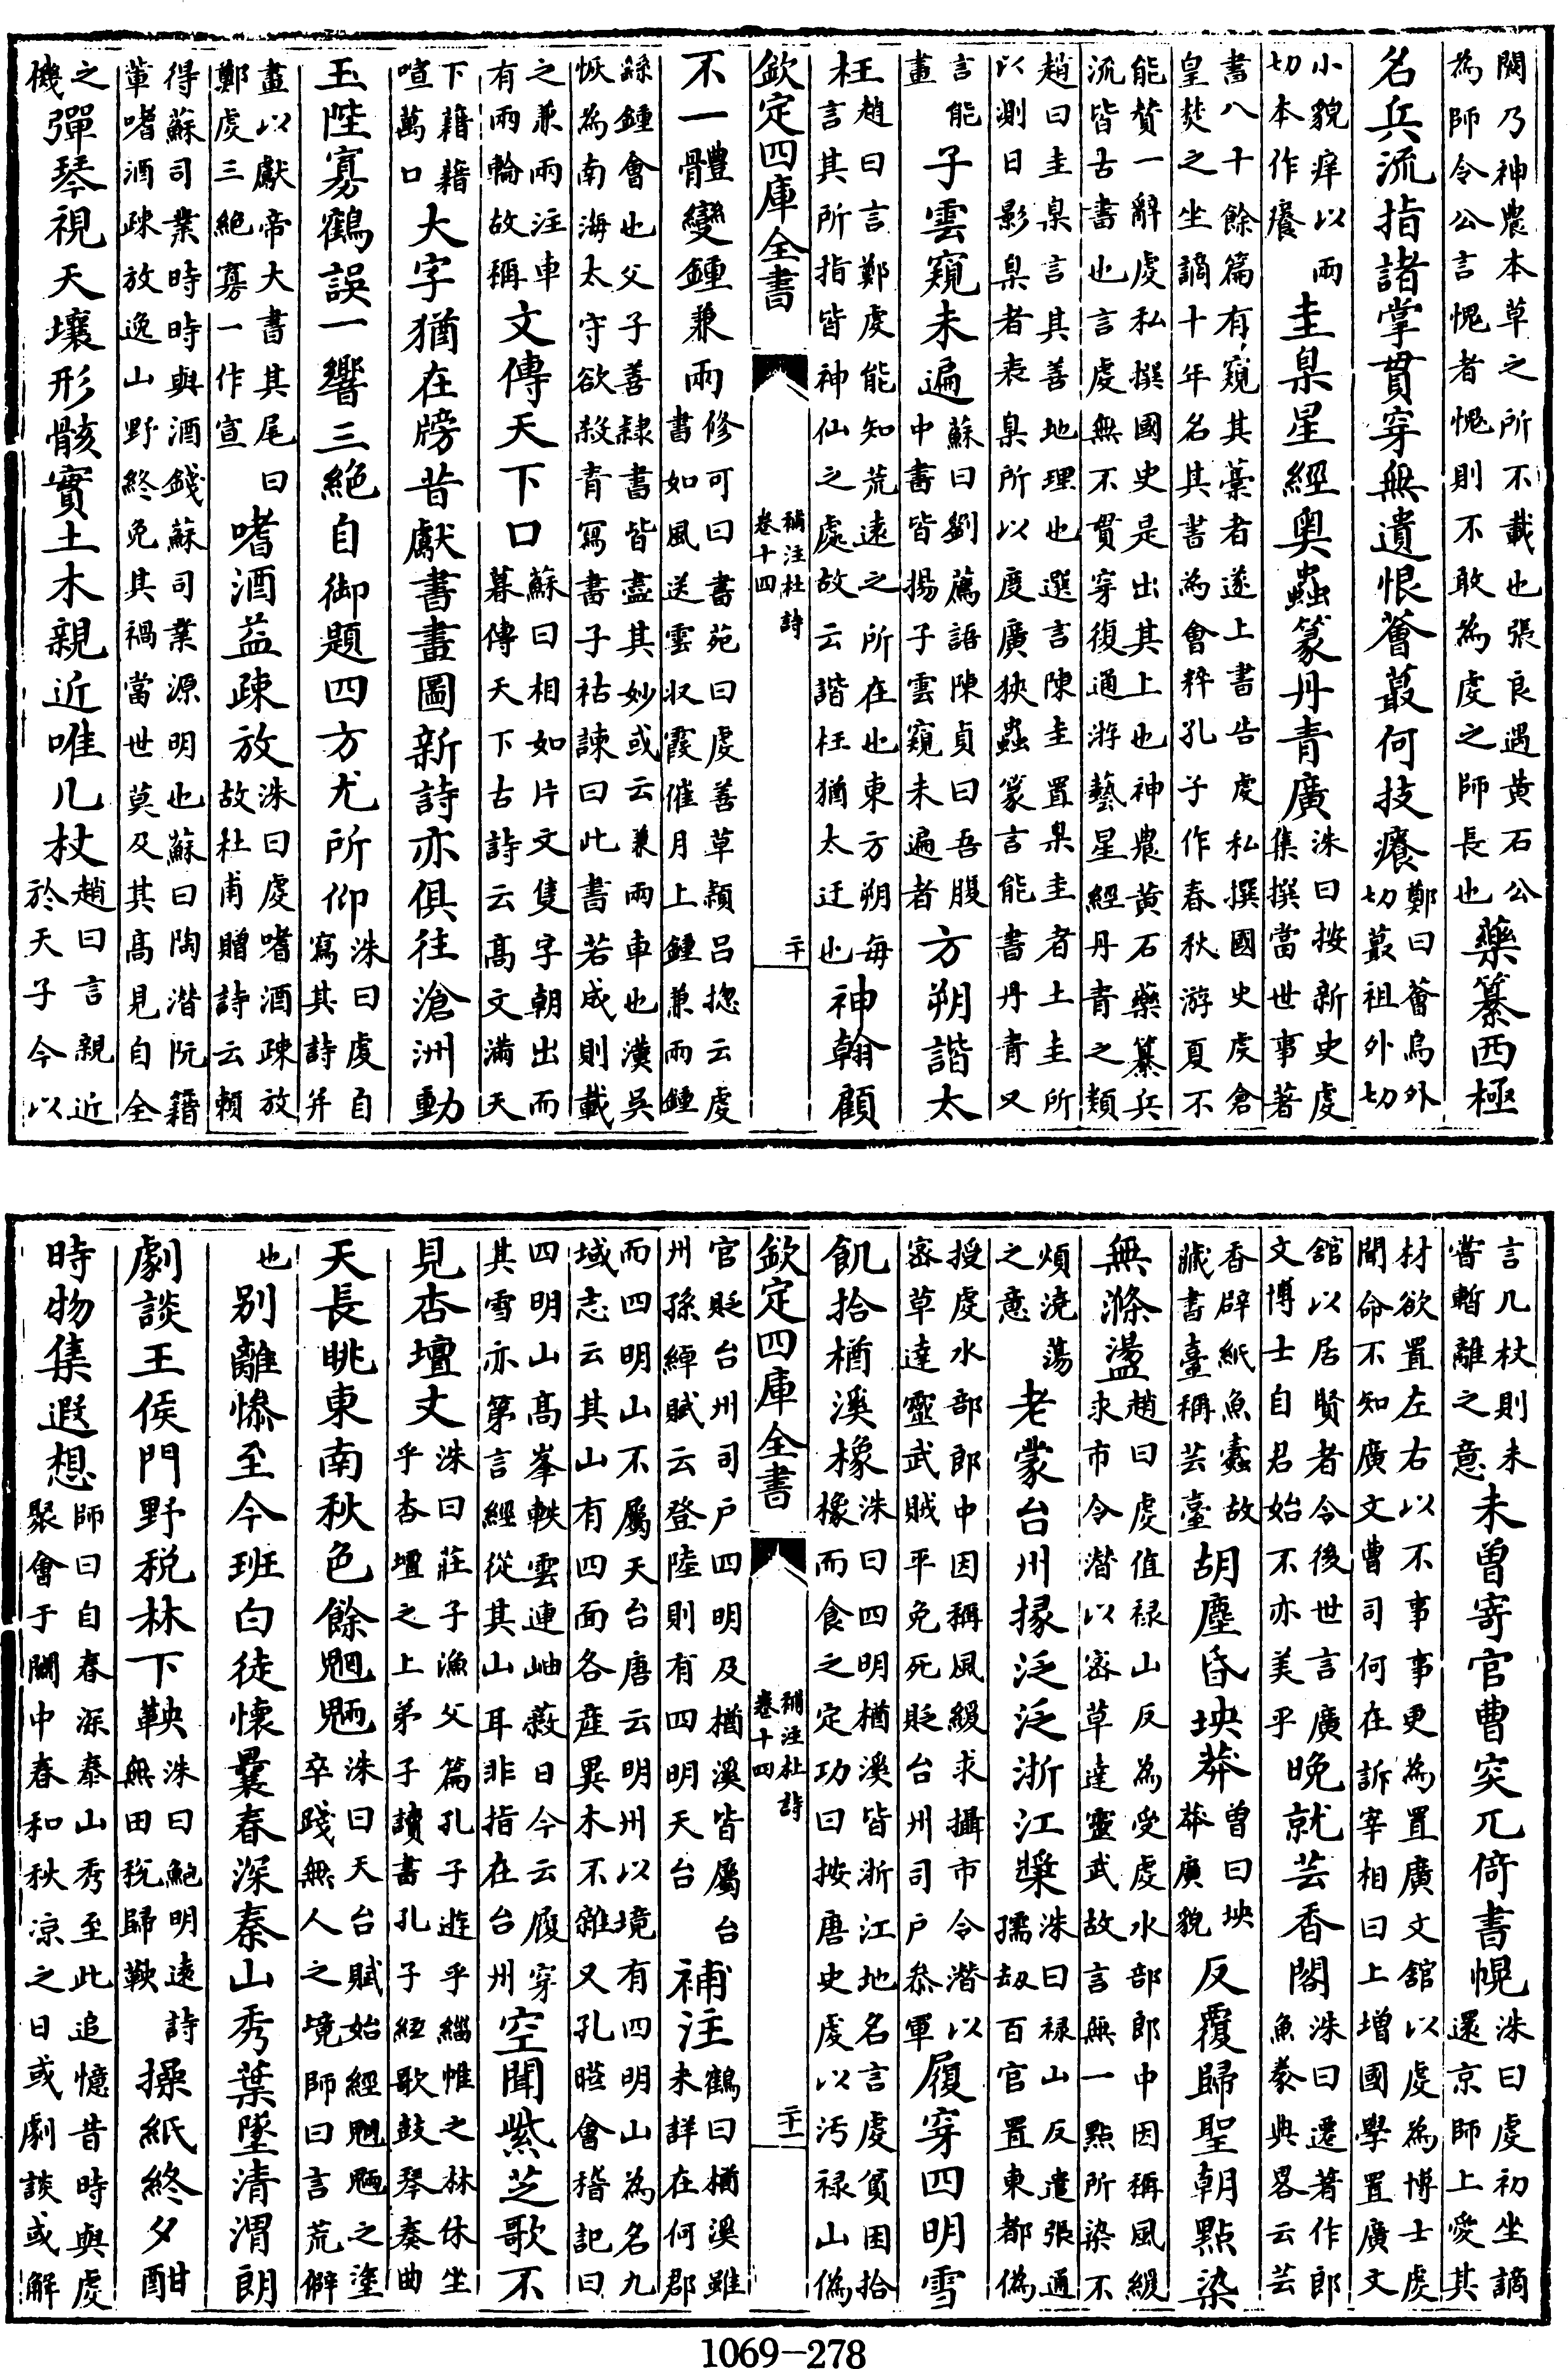 闕乃神農本草之所不載也張良遇黄石公
為師令公言愧者愧則不敢為䖍之師長也藥纂西極
名兵流指諸掌貫穿無遺恨薈蕞何技癢鄭曰薈烏外
切蕞祖外切
小貌痒以兩
切本作癢圭臬星經奥蟲篆丹青廣洙曰按新史䖍
集撰當世事著
書八十餘篇有窺其藁者遂上書告䖍私撰國史䖍倉
皇焚之坐謫十年名其書為會稡孔子作春秋游夏不
能賛一辭䖍私撰國史是出其上也神農黄石藥纂兵
流皆古書也言䖍無不貫穿復通游藝星經丹青之類
趙曰圭臬言其善地理也選言陳圭置臬圭者土圭所
以測日影臬者表臬所以度廣狹蟲篆言能書丹青又
言能
畫子雲窺未遍蘇曰劉薦語陳貞曰吾腹
中書皆揚子雲窺未遍者方朔諧太
枉趙曰言鄭䖍能知荒遠之所在也東方朔每
言其所指皆神仙之處故云諧枉猶太迂也神翰顧
欽定四庫全書
補注杜詩
卷十四
二十
不一體變鍾兼兩修可曰書苑曰䖍善草頴吕揔云䖍
書如風送雲収霞催月上鍾兼兩鍾
繇鍾會也父子善隸書皆盡其妙或云兼兩車也漢吳
恢為南海太守欲殺青寫書子祜諫曰此書若成則載
之兼兩注車
有兩輪故稱文傳天下口蘇曰相如片文隻字朝出而
暮傳天下古詩云髙文滿天
下籍籍
喧萬口大字猶在牓昔獻書畫圖新詩亦俱往滄洲動
玉陛寡鶴誤一響三絶自御題四方尤所仰洙曰䖍自
寫其詩并
畫以獻帝大書其尾曰
鄭䖍三絶寡一作宣嗜酒益疎放洙曰䖍嗜酒疎放
故杜甫贈詩云賴
得蘇司業時時與酒錢蘇司業源明也蘇曰陶濳阮籍
輩嗜酒疎放逸山野終免其禍當世莫及其髙見自全
之
機彈琴視天壤形骸實土木親近唯几杖趙曰言親近
於天子今以
言几杖則未
嘗暫離之意未曽寄官曹突兀倚書幌洙曰䖍初坐謫
還京師上愛其
材欲置左右以不事事更為置廣文舘以䖍為博士䖍
聞命不知廣文曹司何在訴宰相曰上增國學置廣文
舘以居賢者令後世言廣
文博士自君始不亦美乎晩就芸香閣洙曰遷著作郎
魚豢典畧云芸
香辟紙魚蠧故
藏書臺稱芸臺胡塵昏坱莽曽曰坱
莽廣貌反覆歸聖朝㸃染
無滌盪趙曰䖍值禄山反為受䖍水部郎中因稱風緩
求市令潜以宻草達靈武故言無一㸃所染不
煩澆蕩
之意老蒙台州掾泛泛浙江槳洙曰禄山反遣張通
孺刼百官置東都偽
授䖍水部郎中因稱風緩求攝市令潜以
宻草達靈武賊平免死貶台州司户叅軍履穿四明雪
飢拾楢溪橡洙曰四明楢溪皆浙江地名言䖍貧困拾
橡而食之定功曰按唐史䖍以汚禄山偽
欽定四庫全書
補注杜詩
卷十四
二十一
官貶台州司户四明及楢溪皆屬台
州孫綽賦云登陸則有四明天台補注鶴曰楢溪雖
未詳在何郡
而四明山不屬天台唐云明州以境有四明山為名九
域志云其山有四面各産異木不雜又孔曄會稽記曰
四明山髙峯軼雲連岫蔽日今云履穿
其雪亦第言經從其山耳非指在台州空聞紫芝歌不
見杏壇丈洙曰莊子漁父篇孔子遊乎緇帷之林休坐
乎杏壇之上弟子讀書孔子絃歌鼓琴奏曲
天長眺東南秋色餘魍魎洙曰天台賦始經魍魎之塗
卒踐無人之境師曰言荒僻
也别離慘至今班白徒懷曩春深秦山秀葉墜清渭朗
劇談王侯門野税林下鞅洙曰鮑明逺詩
無田税歸鞅操紙終夕酣
時物集遐想師曰自春深泰山秀至此追憶昔時與䖍
聚會于闗中春和秋凉之日或劇談或解
1069-278